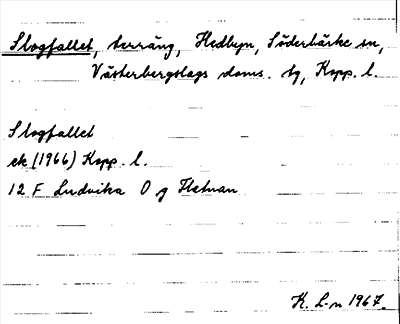 Slogfallet, terräng, Hedbyn, Söderbärke sn,
Västerbergslags doms. tg, Kopp. l.
Slogfallet
ek (1966) Kopp. l.
12 F Ludvika O g
K. L-n 1967.